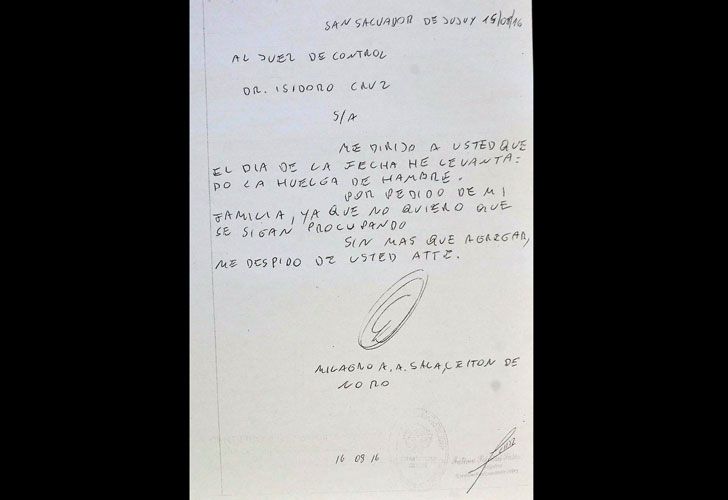 SAN SALVADOR DE JUJUY 15/09/16
AL JUEZ DE CONTROL
DR. ISIDORO CRUZ
S/A
ME DIRIJO A USTED QUE
EL DIA DE LA FECHA HE LEVANTA-
DO LA HUELGA DE HAMBRE.
POR PEDIDO DE MI
FAMILIA, YA QUE NO QUIERO QUE
SE SIGAN PROCUPANDO
SIN MAS QUE AGREGAR,
ME DESPIDO DE USTED ATTE.
MILAGRO A. A. SALA,
DE
NORO
16 09 16